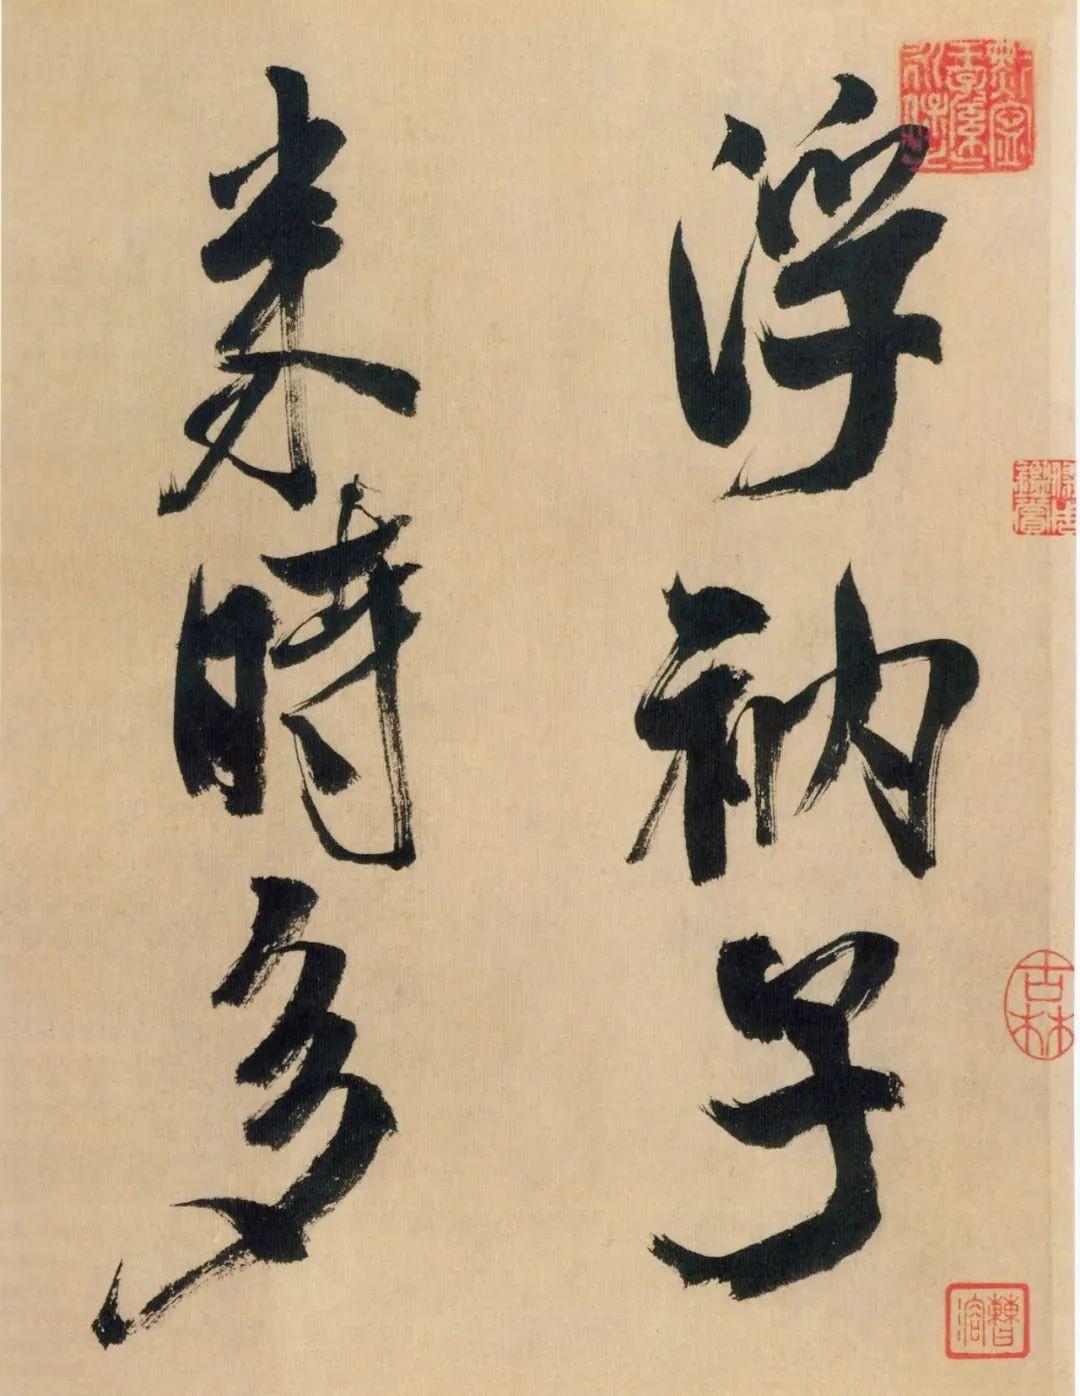 浮衲子
来時多
古林
曹溶